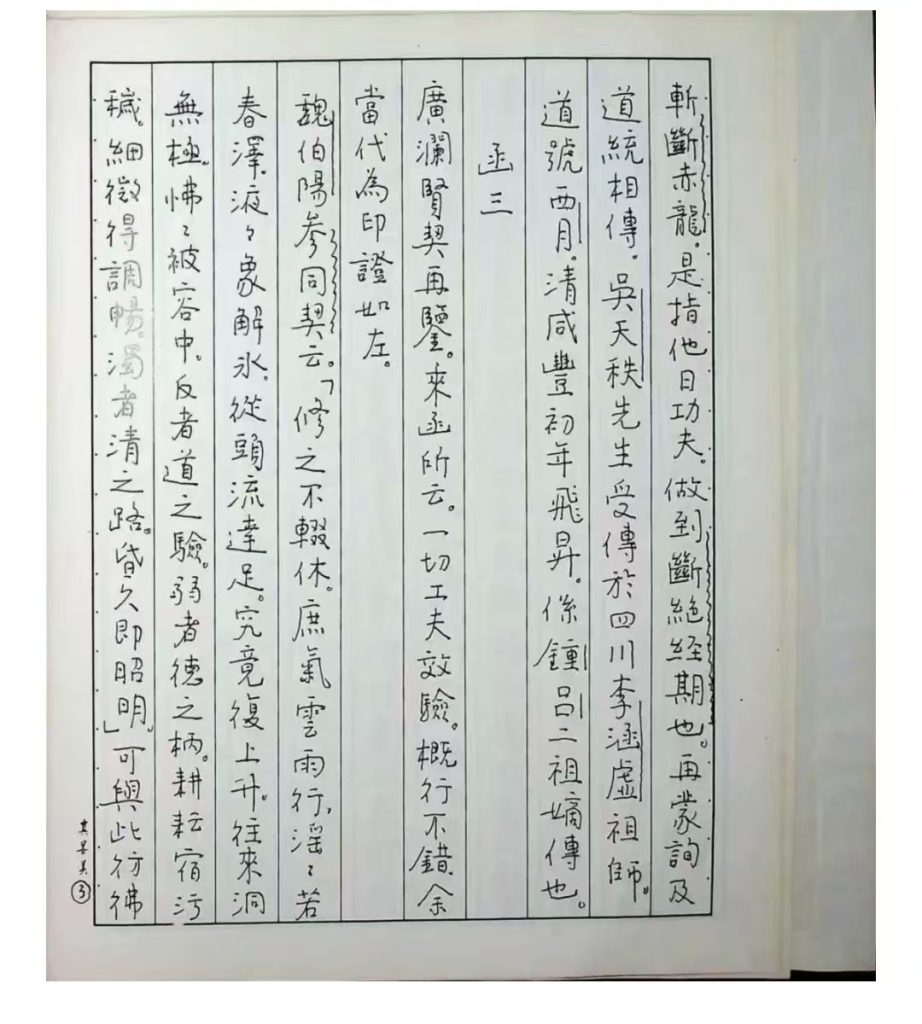 斬斷赤龍。是指他日功夫。做到斷絕経期也。再蒙詢及
道統相傳。吳天秩先生受傳於四川李涵虛祖師。
道號西月。清咸豐初年飛昇。係鍾呂二祖嫡傳也。
函三
廣瀾賢契再鑒。來函所云。一切工夫效驗。概行不錯。余
當代為印證如左。
魏伯陽參同契云。「修之不輟休。庶氣雲雨行，淫〻若
春澤，液〻象解氷，從頭流達足。究竟復上升。往來洞
無極。怫〻被容中。反者道之驗。弱者德之柄。耕耘宿污
穢。細微得調暢。濁者清之路。昏久即昭明」。可與此彷彿
③